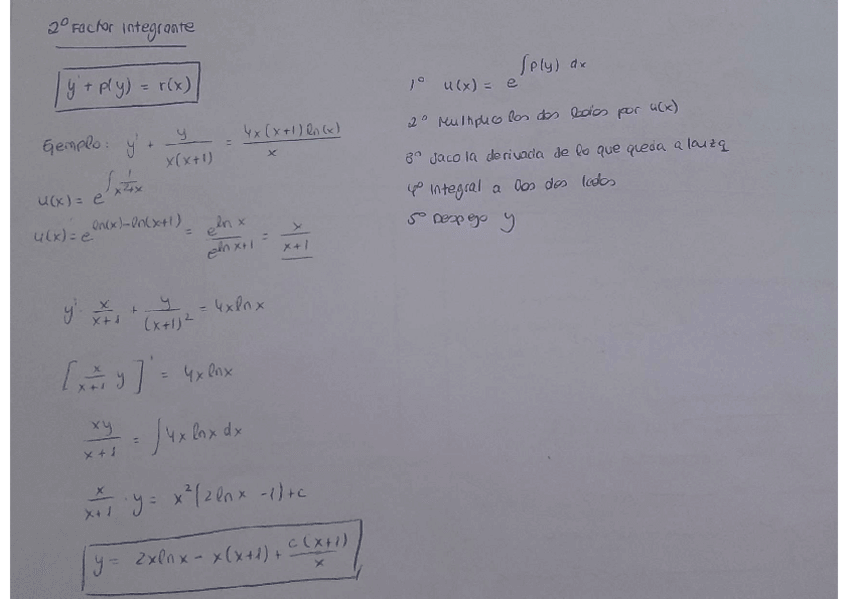 2º Factor Integrante
y' + p(y) = r(x)
Ejemplo: y' + y/(x(x+1)) = 4x(x+1)ln(x)/x
u(x) = e^∫ 1/(x²+x)
u(x) = e^(ln(x)-ln(x+1)) = e^(ln x)/e^(ln x+1) = x/(x+1)
y' · x/(x+1) + y/(x+1)² = 4x ln x
[x/(x+1) y]' = 4x ln x
xy/(x+1) = ∫4x ln x dx
x/(x+1) · y = x²(2 ln x - 1) + c
y = 2x ln x - x(x+1) + c(x+1)/x
1º u(x) = e^∫p(y) dx
2º Multiplico los dos lados por u(x)
3º Saco la derivada de lo que queda a la izq
4º Integral a los dos lados
5º Despejo y